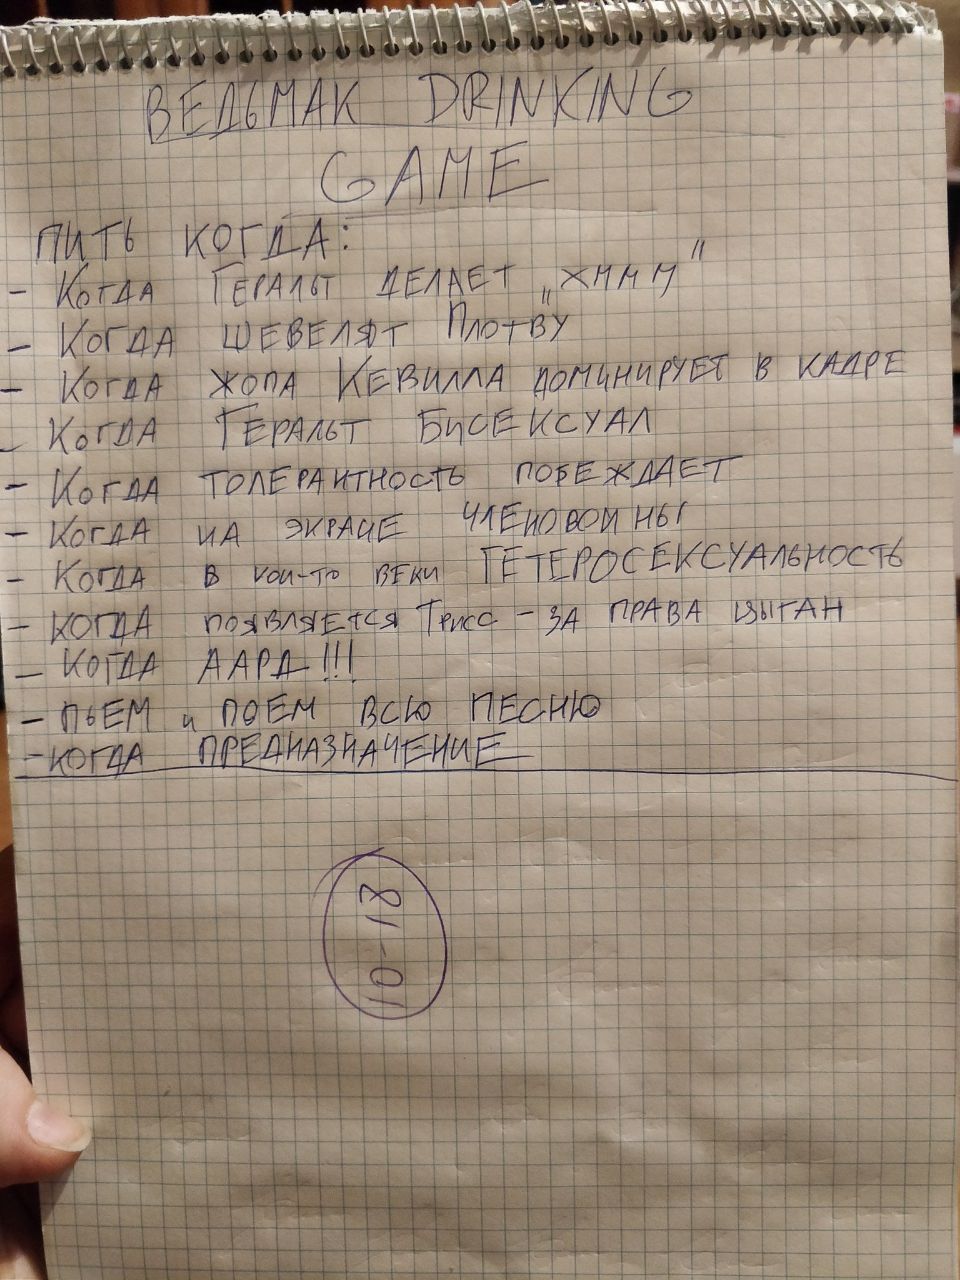 ВЕДЬМАК DRINKING
GAME
ПИТЬ КОГДА:
- КОГДА ГЕРАЛЬТ ДЕЛАЕТ „ХМММ"
- КОГДА ШЕВЕЛЯТ ПЛОТВУ
- КОГДА ЖОПА КЕВИЛЛА ДОМИНИРУЕТ В КАДРЕ
- КОГДА ГЕРАЛЬТ БИСЕКСУАЛ
- КОГДА ТОЛЕРАНТНОСТЬ ПОБЕЖДАЕТ
- КОГДА НА ЭКРАНЕ ЧЛЕНОВОИНЫ
- КОГДА В КОИ-ТО ВЕКИ ГЕТЕРОСЕКСУАЛЬНОСТЬ
- КОГДА ПОЯВЛЯЕТСЯ ТРИСС - ЗА ПРАВА ЦЫГАН
- КОГДА ААРД!!!
- ПЬЕМ и ПОЕМ ВСЮ ПЕСНЮ
- КОГДА ПРЕДНАЗНАЧЕНИЕ
10-18